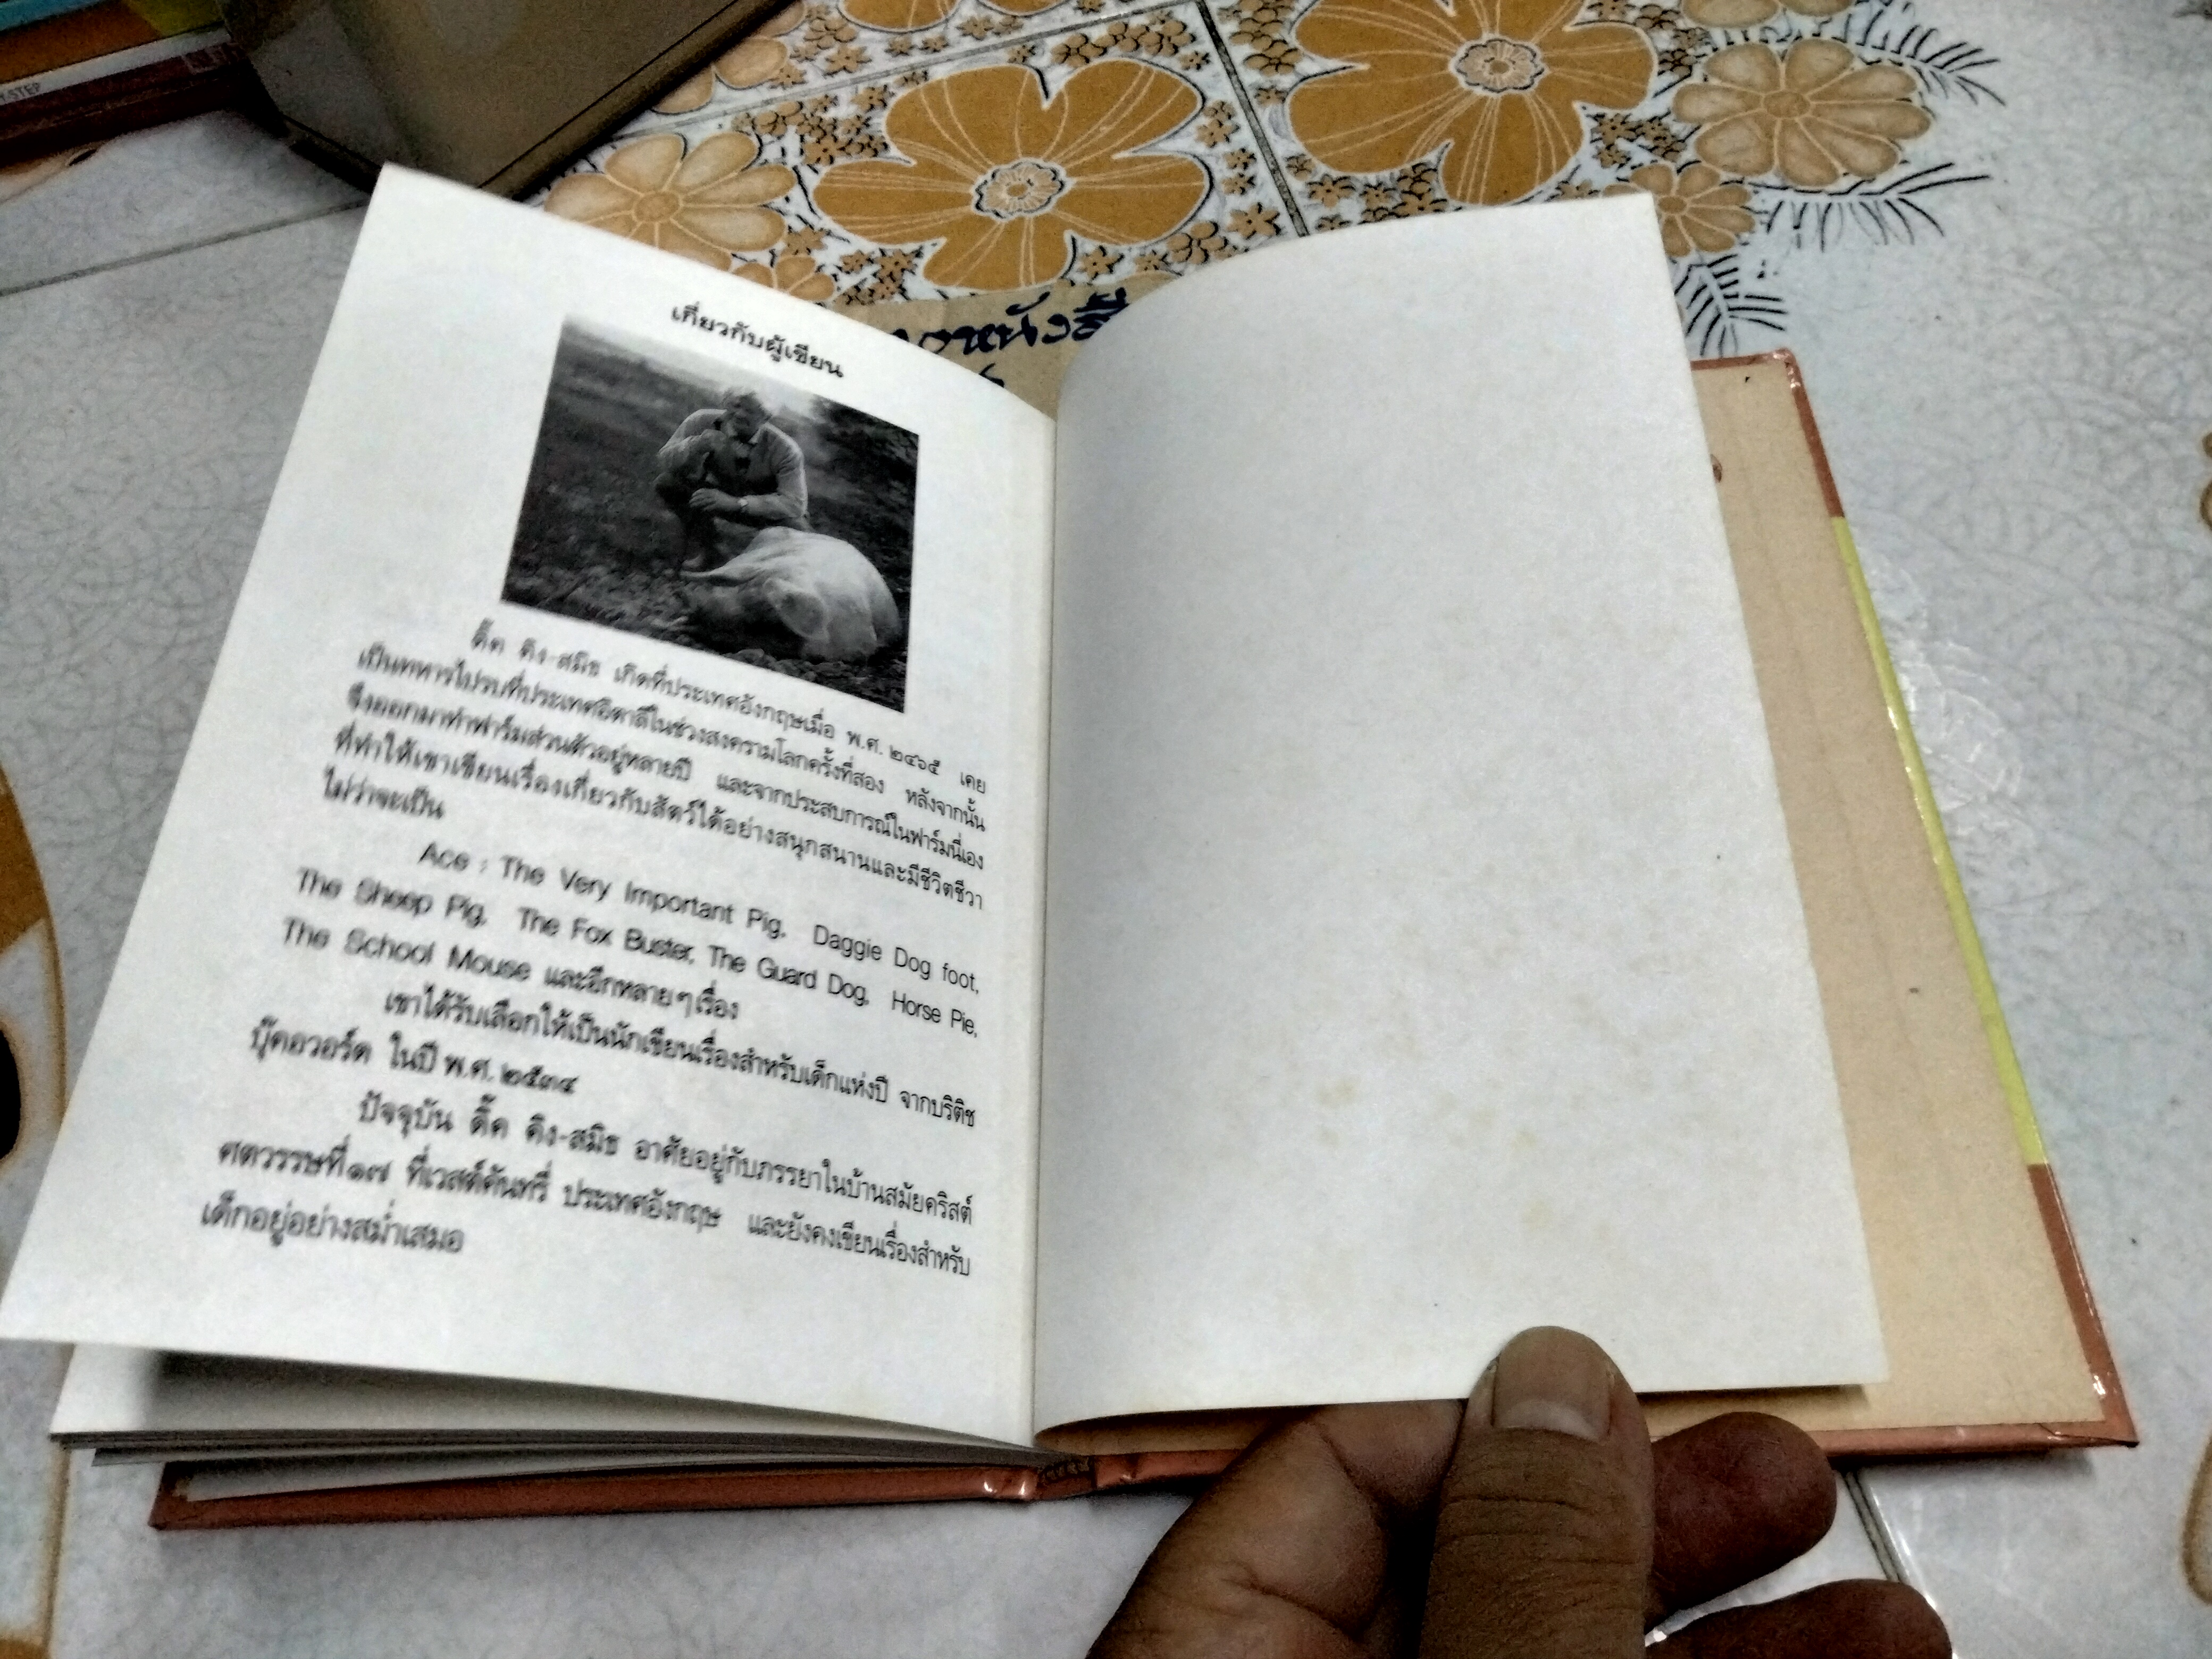 เกี่ยวกับผู้เขียน
ดิ๊ค คิง-สมิธ เกิดที่ประเทศอังกฤษเมื่อ พ.ศ. ๒๔๖๕ เคย
เป็นทหารไปรบที่ประเทศอิตาลีในช่วงสงครามโลกครั้งที่สอง หลังจากนั้น
จึงออกมาทำฟาร์มส่วนตัวอยู่หลายปี และจากประสบการณ์ในฟาร์มนี่เอง
ที่ทำให้เขาเขียนเรื่องเกี่ยวกับสัตว์ได้อย่างสนุกสนานและมีชีวิตชีวา
ไม่ว่าจะเป็น
Ace : The Very Important Pig, Daggie Dog foot,
The Sheep Pig, The Fox Buster, The Guard Dog, Horse Pie,
The School Mouse และอีกหลายๆเรื่อง
เขาได้รับเลือกให้เป็นนักเขียนเรื่องสำหรับเด็กแห่งปี จากบริติช
บุ๊คอวอร์ด ในปี พ.ศ. ๒๕๓๔
ปัจจุบัน ดิ๊ค คิง-สมิธ อาศัยอยู่กับภรรยาในบ้านสมัยคริสต์
ศตวรรษที่๑๗ ที่เวสต์คันทรี่ ประเทศอังกฤษ และยังคงเขียนเรื่องสำหรับ
เด็กอยู่อย่างสม่ำเสมอ